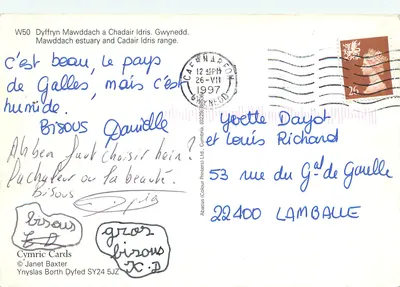 W50 Dyffryn Mawddach a Chadair Idris. Gwynedd.
Mawddach estuary and Cadair Idris range.
c'est beau, le pays
de Galles, mais c'est
humide.
Bisous Danielle
Ah ben faut choisir hein?
la chaleur ou la beauté.
bisous
bisous
gros
bisous
X.D
Cymric Cards
© Janet Baxter
Ynyslas Borth Dyfed SY24 5JZ
CAERNARFON
12 30PM
26-VII
1997
GWYNEDD
Abacus (Colour Printers) Ltd. Cumbria
Yvette Dayot
et Louis Richard
53 rue du Gal de Gaulle
22400 LAMBALLE